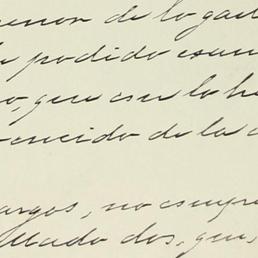 menor de lo gas
podido exam
o, que en lo h
encido de la c
argos, no comp
llado dos, que,